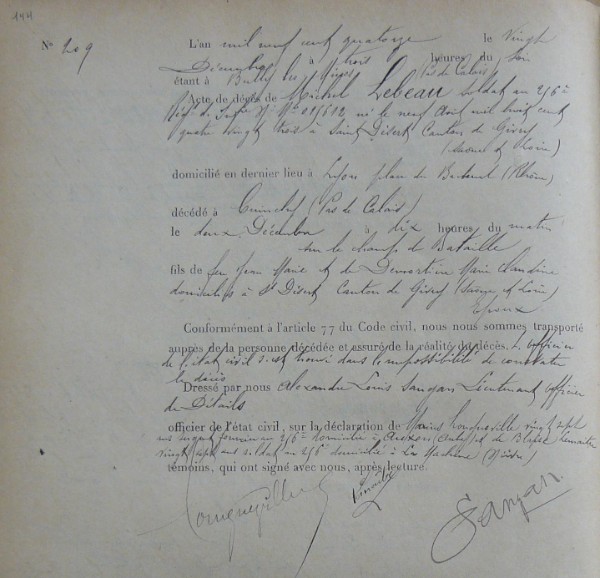 194
N° 209
L'an mil neuf cent quatorze le Vingt
Décembre à trois heures du soir
étant à Bully les Mines Pas de Calais
Acte de décès de Michel Lebeau soldat au 256e
Rég. d'Inf. né le neuf Août mil huit cent
quatre vingt trois à Saint Désert Canton de Givry
(Saône et Loire)
domicilié en dernier lieu à Lyon place du (Rhône)
décédé à Cuinchy (Pas de Calais)
le deux Décembre à dix heures du matin
sur le champ de Bataille
fils de feu Jean Marie et de Marie Claudine
domiciliés à St Désert Canton de Givry (Saône et Loire)
Epoux
Conformément à l'article 77 du Code civil, nous nous sommes transporté
auprès de la personne décédée et assuré de la réalité du décès. L'officier
de l'état civil s'est trouvé dans l'impossibilité de constater
le décès
Dressé par nous Alexandre Louis Sangan Lieutenant officier
de Détails
officier de l'état civil, sur la déclaration de Marius vingt sept
ans sergent fourrier au 256e domicilié à et de Lemaitre
vingt sept ans soldat au 256e domicilié à La Machine (Nièvre)
témoins, qui ont signé avec nous, après lecture.
Sangan